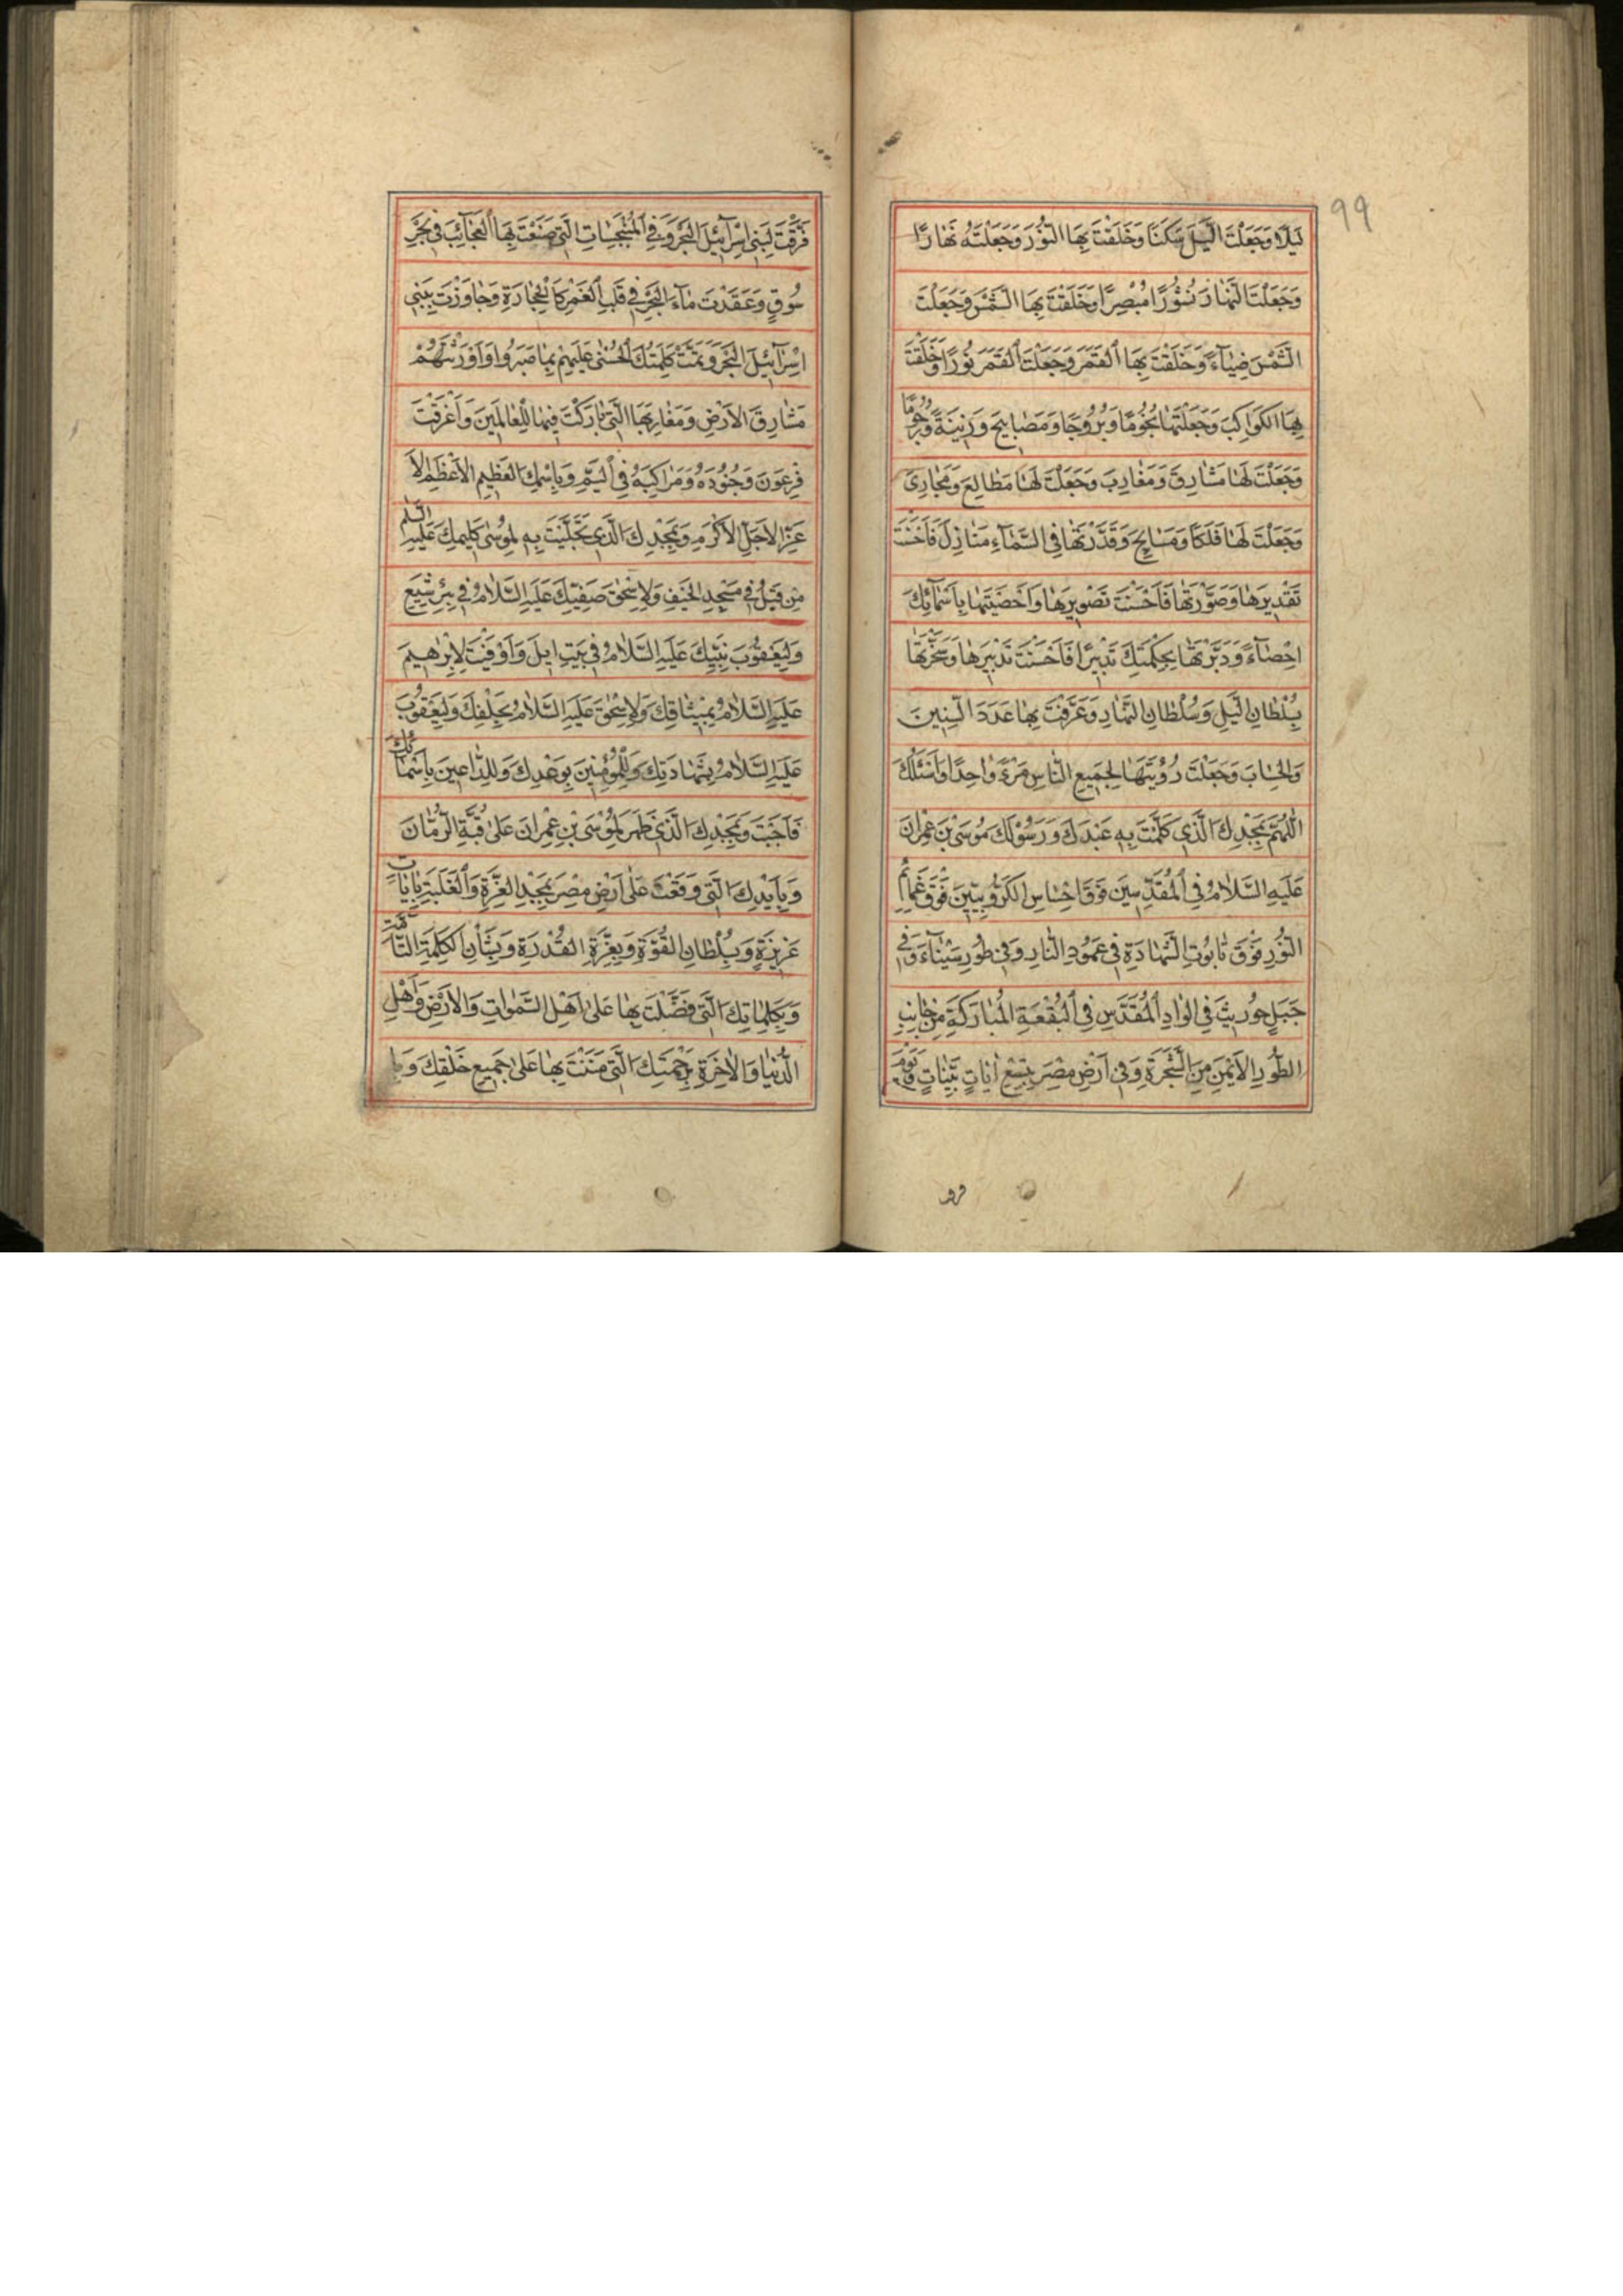 ٩٩
لَيْلًا وَجَعَلْتَ اللَّيْلَ سَكَنًا وَخَلَقْتَ بِهَا النُّورَ وَجَعَلْتَهُ نَهَارًا
وَجَعَلْتَ النَّهَارَ نُشُورًا مُبْصِرًا وَخَلَقْتَ بِهَا الشَّمْسَ وَجَعَلْتَ
الشَّمْسَ ضِيَآءً وَخَلَقْتَ بِهَا الْقَمَرَ وَجَعَلْتَ الْقَمَرَ نُورًا وَخَلَقْتَ
بِهَا الْكَوَاكِبَ وَجَعَلْتَهَا نُجُومًا وَبُرُوجًا وَمَصَابِيحَ وَزِينَةً وَرُجُومًا
وَجَعَلْتَ لَهَا مَشَارِقَ وَمَغَارِبَ وَجَعَلْتَ لَهَا مَطَالِعَ وَمَجَارِىَ
وَجَعَلْتَ لَهَا فَلَكًا وَمَسَابِحَ وَقَدَّرْتَهَا فِى السَّمَآءِ مَنَازِلَ فَاَحْسَنْتَ
تَقْدِيرَهَا وَصَوَّرْتَهَا فَاَحْسَنْتَ تَصْوِيرَهَا وَاَحْصَيْتَهَا بِاَسْمَآئِكَ
اِحْصَآءً وَدَبَّرْتَهَا بِحِكْمَتِكَ تَدْبِيرًا فَاَحْسَنْتَ تَدْبِيرَهَا وَسَخَّرْتَهَا
بِسُلْطَانِ اللَّيْلِ وَسُلْطَانِ النَّهَارِ وَعَرَّفْتَ بِهَا عَدَدَ السِّنِينَ
وَالْحِسَابَ وَجَعَلْتَ رُؤْيَتَهَا لِجَمِيعِ النَّاسِ مَرْءً وَاحِدًا وَاَسْئَلُكَ
اللّٰهُمَّ بِمَجْدِكَ الَّذِى كَلَّمْتَ بِهِ عَبْدَكَ وَرَسُولَكَ مُوسَى بْنَ عِمْرَانَ
عَلَيْهِ السَّلَامُ فِى الْمُقَدَّسِينَ فَوْقَ اِحْسَاسِ الْكَرُّوبِيِّينَ فَوْقَ غَمَآئِمِ
النُّورِ فَوْقَ تَابُوتِ الشَّهَادَةِ فِى عَمُودِ النَّارِ وَفِى طُورِ سَيْنَآءَ وَفِى
جَبَلِ حُورِيثَ فِى الْوَادِ الْمُقَدَّسِ فِى الْبُقْعَةِ الْمُبَارَكَةِ مِنْ جَانِبِ
الطُّورِ الْاَيْمَنِ مِنَ الشَّجَرَةِ وَفِى اَرْضِ مِصْرَ بِتِسْعِ اٰيَاتٍ بَيِّنَاتٍ وَيَوْمَ
فَرَقْتَ لِبَنِى اِسْرَآئِيلَ الْبَحْرَ وَفِى الْمُنْبَجِسَاتِ الَّتِى صَنَعْتَ بِهَا الْعَجَآئِبَ فِى بَحْرِ
سُوفٍ وَعَقَدْتَ مَآءَ الْبَحْرِ فِى قَلْبِ الْغَمْرِ كَالْحِجَارَةِ وَجَاوَزْتَ بِبَنِى
اِسْرَآئِيلَ الْبَحْرَ وَتَمَّتْ كَلِمَتُكَ الْحُسْنٰى عَلَيْهِمْ بِمَا صَبَرُوا وَاَوْرَثْتَهُمْ
مَشَارِقَ الْاَرْضِ وَمَغَارِبَهَا الَّتِى بَارَكْتَ فِيهَا لِلْعَالَمِينَ وَاَغْرَقْتَ
فِرْعَوْنَ وَجُنُودَهُ وَمَرَاكِبَهُ فِى الْيَمِّ وَبِاِسْمِكَ الْعَظِيمِ الْاَعْظَمِ الْاَ
عَزِّ الْاَجَلِّ الْاَكْرَمِ وَبِمَجْدِكَ الَّذِى تَجَلَّيْتَ بِهِ لِمُوسٰى كَلِيمِكَ عَلَيْهِ السَّلٰمُ
مِنْ قَبْلُ فِى مَسْجِدِ الْخَيْفِ وَلِاِسْحٰقَ صَفِيِّكَ عَلَيْهِ السَّلَامُ فِى بِئْرِ شِيَعٍ
وَلِيَعْقُوبَ نَبِيِّكَ عَلَيْهِ السَّلَامُ فِى بَيْتِ اِيلَ وَاَوْفَيْتَ لِاِبْرٰهِيمَ
عَلَيْهِ السَّلَامُ بِمِيثَاقِكَ وَلِاِسْحٰقَ عَلَيْهِ السَّلَامُ بِحَلْفِكَ وَلِيَعْقُوبَ
عَلَيْهِ السَّلَامُ بِشَهَادَتِكَ وَلِلْمُؤْمِنِينَ بِوَعْدِكَ وَلِلدَّاعِينَ بِاَسْمَآئِكَ
فَاَجَبْتَ وَبِمَجْدِكَ الَّذِى ظَهَرَ لِمُوسَى بْنِ عِمْرَانَ عَلٰى قُبَّةِ الرُّمَّانَ
وَبِاَيْدِكَ الَّتِى وَقَعَتْ عَلٰى اَرْضِ مِصْرَ بِمَجْدِ الْعِزَّةِ وَالْغَلَبَةِ بِاٰيَاتٍ
عَزِيزَةٍ وَبِسُلْطَانِ الْقُوَّةِ وَبِعِزَّةِ الْقُدْرَةِ وَبِشَأْنِ الْكَلِمَةِ التَّآمَّةِ
وَبِكَلِمَاتِكَ الَّتِى تَفَضَّلْتَ بِهَا عَلٰى اَهْلِ السَّمٰوَاتِ وَالْاَرْضِ وَاَهْلِ
الدُّنْيَا وَالْاٰخِرَةِ بِرَحْمَتِكَ الَّتِى مَنَنْتَ بِهَا عَلٰى جَمِيعِ خَلْقِكَ وَبِا